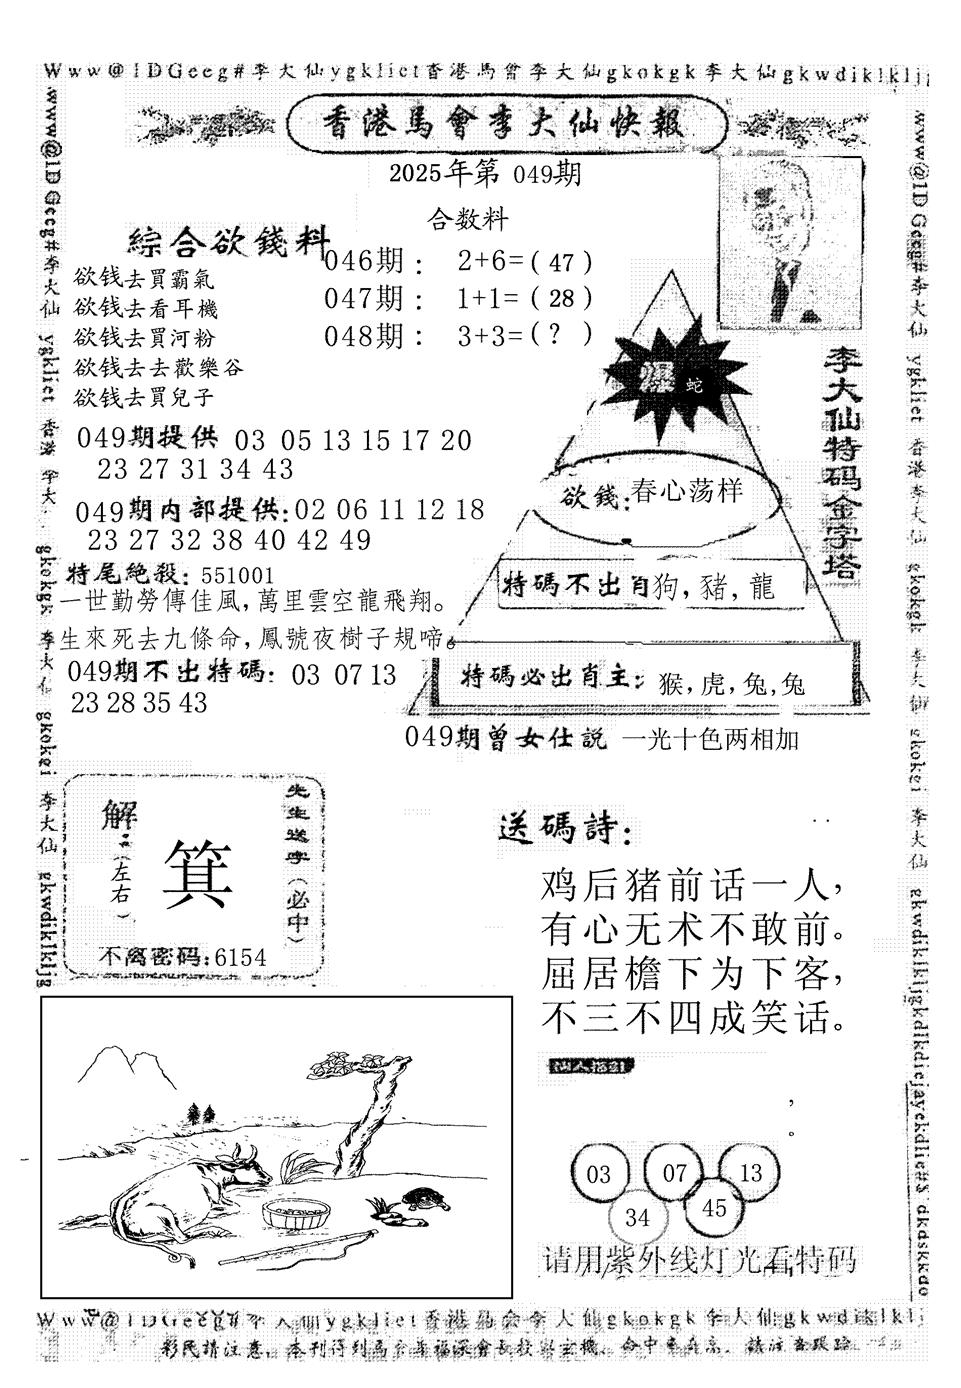 Www@1DGeeg#李大仙ygkliet香港馬會李大仙gkokgk李大仙gkwdiklkljj
香港馬會李大仙快報
2025年第 049期
合数料
綜合欲錢料
欲钱去買霸氣
欲钱去看耳機
欲钱去買河粉
欲钱去去歡樂谷
欲钱去買兒子
046期： 2+6=( 47 )
047期： 1+1=( 28 )
048期： 3+3=( ? )
049期提供 03 05 13 15 17 20
23 27 31 34 43
049期内部提供:02 06 11 12 18
23 27 32 38 40 42 49
特尾絶殺: 551001
一世勤勞傳佳風,萬里雲空龍飛翔。
生來死去九條命,鳳號夜樹子規啼。
049期不出特碼: 03 07 13
23 28 35 43
爆 蛇
欲錢:春心荡样
特碼不出肖狗,豬,龍
特碼必出肖主: 猴,虎,兔,兔
李大仙特码金字塔
049期曾女仕説 一光十色两相加
解:(左右)
箕
先生送字(必中)
不离密码:6154
送碼詩:
鸡后猪前话一人,
有心无术不敢前。
屈居檐下为下客,
不三不四成笑话。
,
。
03 07 13
34 45
请用紫外线灯光看特码
www@1DGeeg#李大仙 ygkliet 香港 李大 gkokgk 李大仙 gkokei 李大仙 gkwdiklkljg
www@1DGeeg#李大仙 ygkliet 香港李大仙 gkokgk 李大仙 gkokei 李大仙 gkwdiklkljgkdlkdiejayekdlie#$ dkdskkdo
Www@1DGeeg#李大仙ygkliet香港馬会李大仙gkokgk李大仙gkwdiklklj
彩民請注意，本刊得到馬会